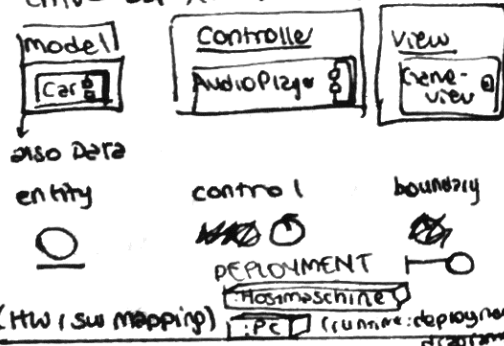 model Controller View
Car AudioPlayer
also Data
entity control boundary
DEPLOYMENT
:Hostmaschine
(HW / SW mapping) :PC (runtime:deployment
diagram